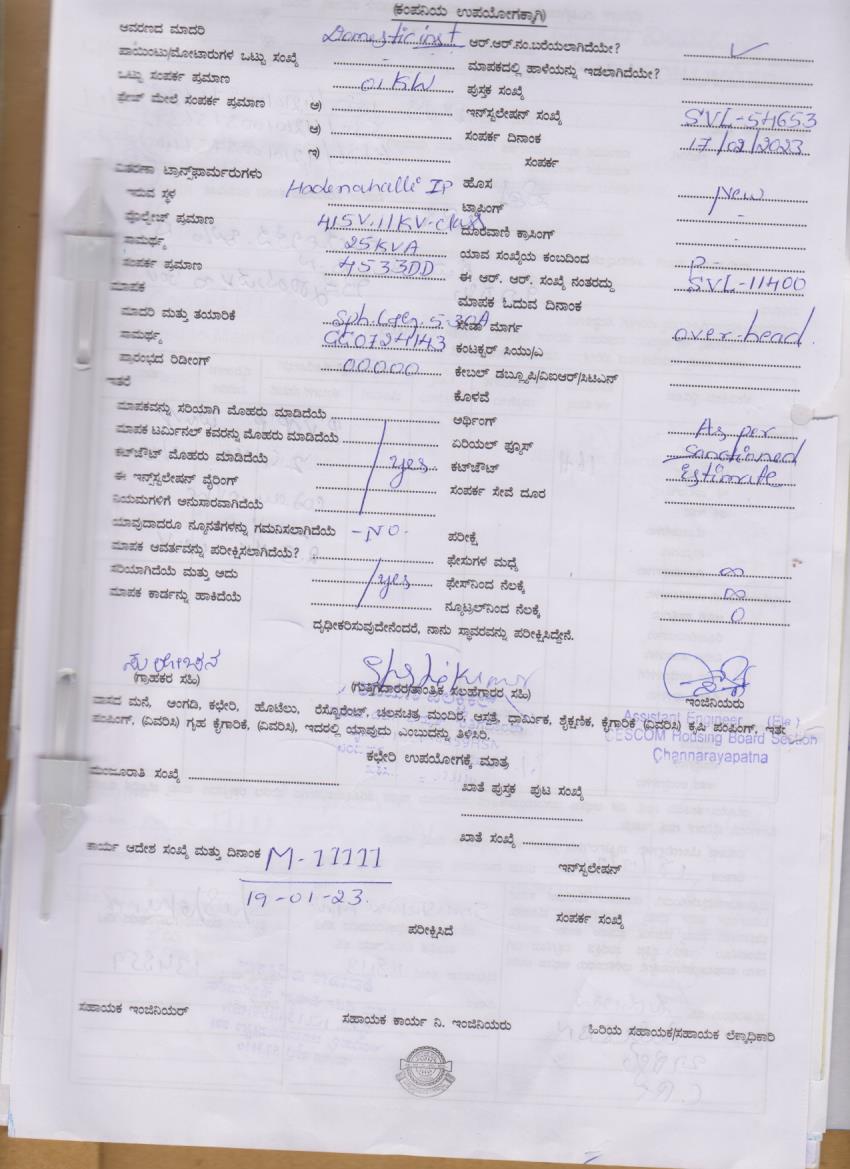 (ಕಂಪನಿಯ ಉಪಯೋಗಕ್ಕಾಗಿ)
ಆವರಣದ ಮಾದರಿ Domestic inst ಆರ್.ಆರ್.ನಂ.ಬರೆಯಲಾಗಿದೆಯೇ? ✓
ಪಾಯಿಂಟು/ಮೋಟಾರುಗಳ ಒಟ್ಟು ಸಂಖ್ಯೆ - - ಮಾಪಕದಲ್ಲಿ ಹಾಳೆಯನ್ನು ಇಡಲಾಗಿದೆಯೇ?
ಒಟ್ಟು ಸಂಪರ್ಕ ಪ್ರಮಾಣ 01 KW ಪುಸ್ತಕ ಸಂಖ್ಯೆ
ಫೇಜ್ ಮೇಲೆ ಸಂಪರ್ಕ ಪ್ರಮಾಣ ಅ) ಇನ್‌ಸ್ಟಲೇಷನ್ ಸಂಖ್ಯೆ SVL-54653
ಆ) ಸಂಪರ್ಕ ದಿನಾಂಕ 17/02/2023
ಇ) ಸಂಪರ್ಕ
ವಿತರಣಾ ಟ್ರಾನ್ಸ್‌ಫಾರ್ಮರುಗಳು
ಇರುವ ಸ್ಥಳ Hadenahalli IP ಹೊಸ New
ಟ್ಯಾಪಿಂಗ್ -
ವೋಲ್ಟೇಜ್ ಪ್ರಮಾಣ 415V.11KV-class ದೂರವಾಣಿ ಕ್ರಾಸಿಂಗ್ -
ಸಾಮರ್ಥ್ಯ 25KVA ಯಾವ ಸಂಖ್ಯೆಯ ಕಂಬದಿಂದ P-
ಸಂಪರ್ಕ ಪ್ರಮಾಣ 4533DD ಈ ಆರ್. ಆರ್. ಸಂಖ್ಯೆ ನಂತರದ್ದು SVL-11400
ಮಾಪಕ ಮಾಪಕ ಓದುವ ದಿನಾಂಕ
ಮಾದರಿ ಮತ್ತು ತಯಾರಿಕೆ Sph. 5-30A ಸೇವಾ ಮಾರ್ಗ over-head.
ಸಾಮರ್ಥ್ಯ ಕಂಟಕ್ಟರ್ ಸಿಯು/ಎ
ಪ್ರಾರಂಭದ ರಿಡೀಂಗ್ 00000 ಕೇಬಲ್ ಡಬ್ಲ್ಯೂಪಿ/ವಿಐಆರ್/ಸಿಟಿಎನ್
ಇತರೆ ಕೊಳವೆ
ಮಾಪಕವನ್ನು ಸರಿಯಾಗಿ ಮೊಹರು ಮಾಡಿದೆಯೆ ಅರ್ಥಿಂಗ್
ಮಾಪಕ ಟರ್ಮಿನಲ್ ಕವರನ್ನು ಮೊಹರು ಮಾಡಿದೆಯೆ ಏರಿಯಲ್ ಫ್ಯೂಸ್ As per
ಕಟ್‌ಔಟ್ ಮೊಹರು ಮಾಡಿದೆಯೆ yes ಕಟ್‌ಔಟ್ Sanctioned
ಈ ಇನ್‌ಸ್ಟಲೇಷನ್ ವೈರಿಂಗ್ ಸಂಪರ್ಕ ಸೇವೆ ದೂರ Estimate
ನಿಯಮಗಳಿಗೆ ಅನುಸಾರವಾಗಿದೆಯೆ
ಯಾವುದಾದರೂ ನ್ಯೂನತೆಗಳನ್ನು ಗಮನಿಸಲಾಗಿದೆಯೆ -NO- ಪರೀಕ್ಷೆ
ಮಾಪಕ ಆವರ್ತವನ್ನು ಪರೀಕ್ಷಿಸಲಾಗಿದೆಯೆ? ಫೇಸುಗಳ ಮಧ್ಯೆ ∞
ಸರಿಯಾಗಿದೆಯೆ ಮತ್ತು ಅದು yes ಫೇಸ್‌ನಿಂದ ನೆಲಕ್ಕೆ ∞
ಮಾಪಕ ಕಾರ್ಡನ್ನು ಹಾಕಿದೆಯೆ ನ್ಯೂಟ್ರಲ್‌ನಿಂದ ನೆಲಕ್ಕೆ 0
ದೃಢೀಕರಿಸುವುದೇನೆಂದರೆ, ನಾನು ಸ್ಥಾವರವನ್ನು ಪರೀಕ್ಷಿಸಿದ್ದೇನೆ.
ಸುಲೋಚನ
(ಗ್ರಾಹಕರ ಸಹಿ) (ಗುತ್ತಿಗೆದಾರರ/ತಾಂತ್ರಿಕ ಸಲಹೆಗಾರರ, ಸಹಿ) ಇಂಜಿನಿಯರು
ವಾಸದ ಮನೆ, ಅಂಗಡಿ, ಕಛೇರಿ, ಹೊಟೆಲು, ರೆಸ್ಟೋರೆಂಟ್, ಚಲನಚಿತ್ರ ಮಂದಿರ, ಆಸ್ಪತ್ರೆ, ಧಾರ್ಮಿಕ, ಶೈಕ್ಷಣಿಕ, ಕೈಗಾರಿಕೆ (ವಿವರಿಸಿ) ಕೃಷಿ ಪಂಪಿಂಗ್, ಇತರೆ
ಪಂಪಿಂಗ್, (ವಿವರಿಸಿ) ಗೃಹ ಕೈಗಾರಿಕೆ, (ವಿವರಿಸಿ), ಇದರಲ್ಲಿ ಯಾವುದು ಎಂಬುದನ್ನು ತಿಳಿಸಿರಿ.
Assistant Engineer (Ele)
CESCOM Housing Board Section
Channarayapatna
ಕಛೇರಿ ಉಪಯೋಗಕ್ಕೆ ಮಾತ್ರ
ಮಂಜೂರಾತಿ ಸಂಖ್ಯೆ ಖಾತೆ ಪುಸ್ತಕ ಪುಟ ಸಂಖ್ಯೆ
ಖಾತೆ ಸಂಖ್ಯೆ
ಕಾರ್ಯ ಆದೇಶ ಸಂಖ್ಯೆ ಮತ್ತು ದಿನಾಂಕ M-11111 ಇನ್‌ಸ್ಟಲೇಷನ್
19-01-23. ಸಂಪರ್ಕ ಸಂಖ್ಯೆ
ಪರೀಕ್ಷಿಸಿದೆ
ಸಹಾಯಕ ಇಂಜಿನಿಯರ್ ಸಹಾಯಕ ಕಾರ್ಯ ನಿ. ಇಂಜಿನಿಯರು ಹಿರಿಯ ಸಹಾಯಕ/ಸಹಾಯಕ ಲೆಖ್ಖಾಧಿಕಾರಿ